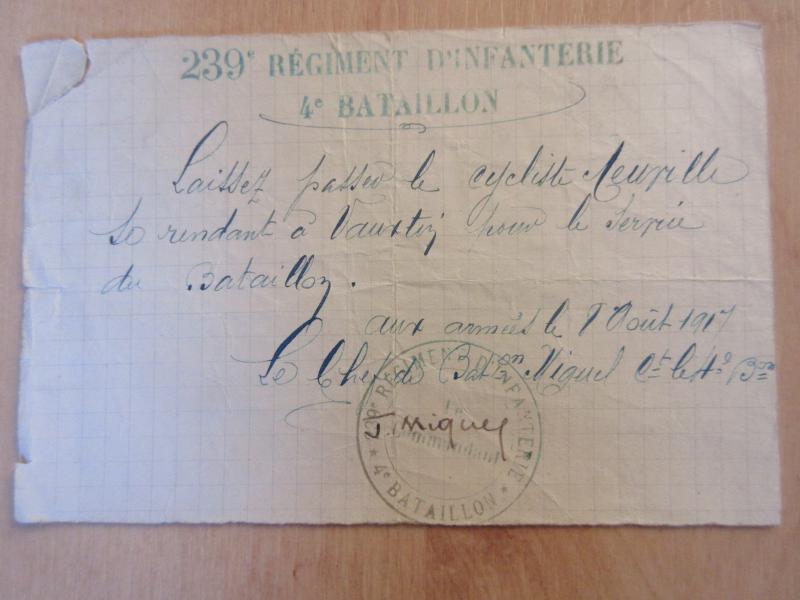 239e RÉGIMENT D'INFANTERIE
4e BATAILLON
Laissez passer le cycliste Neuville
se rendant à Vauxtin pour le Service
du Bataillon.
aux armées le 8 Août 1917
Le Chef de Baton Miguel Ct le 4e Bon
239e RÉGIMENT D'INFANTERIE
Le
Commandant
Miguel
* 4e BATAILLON *